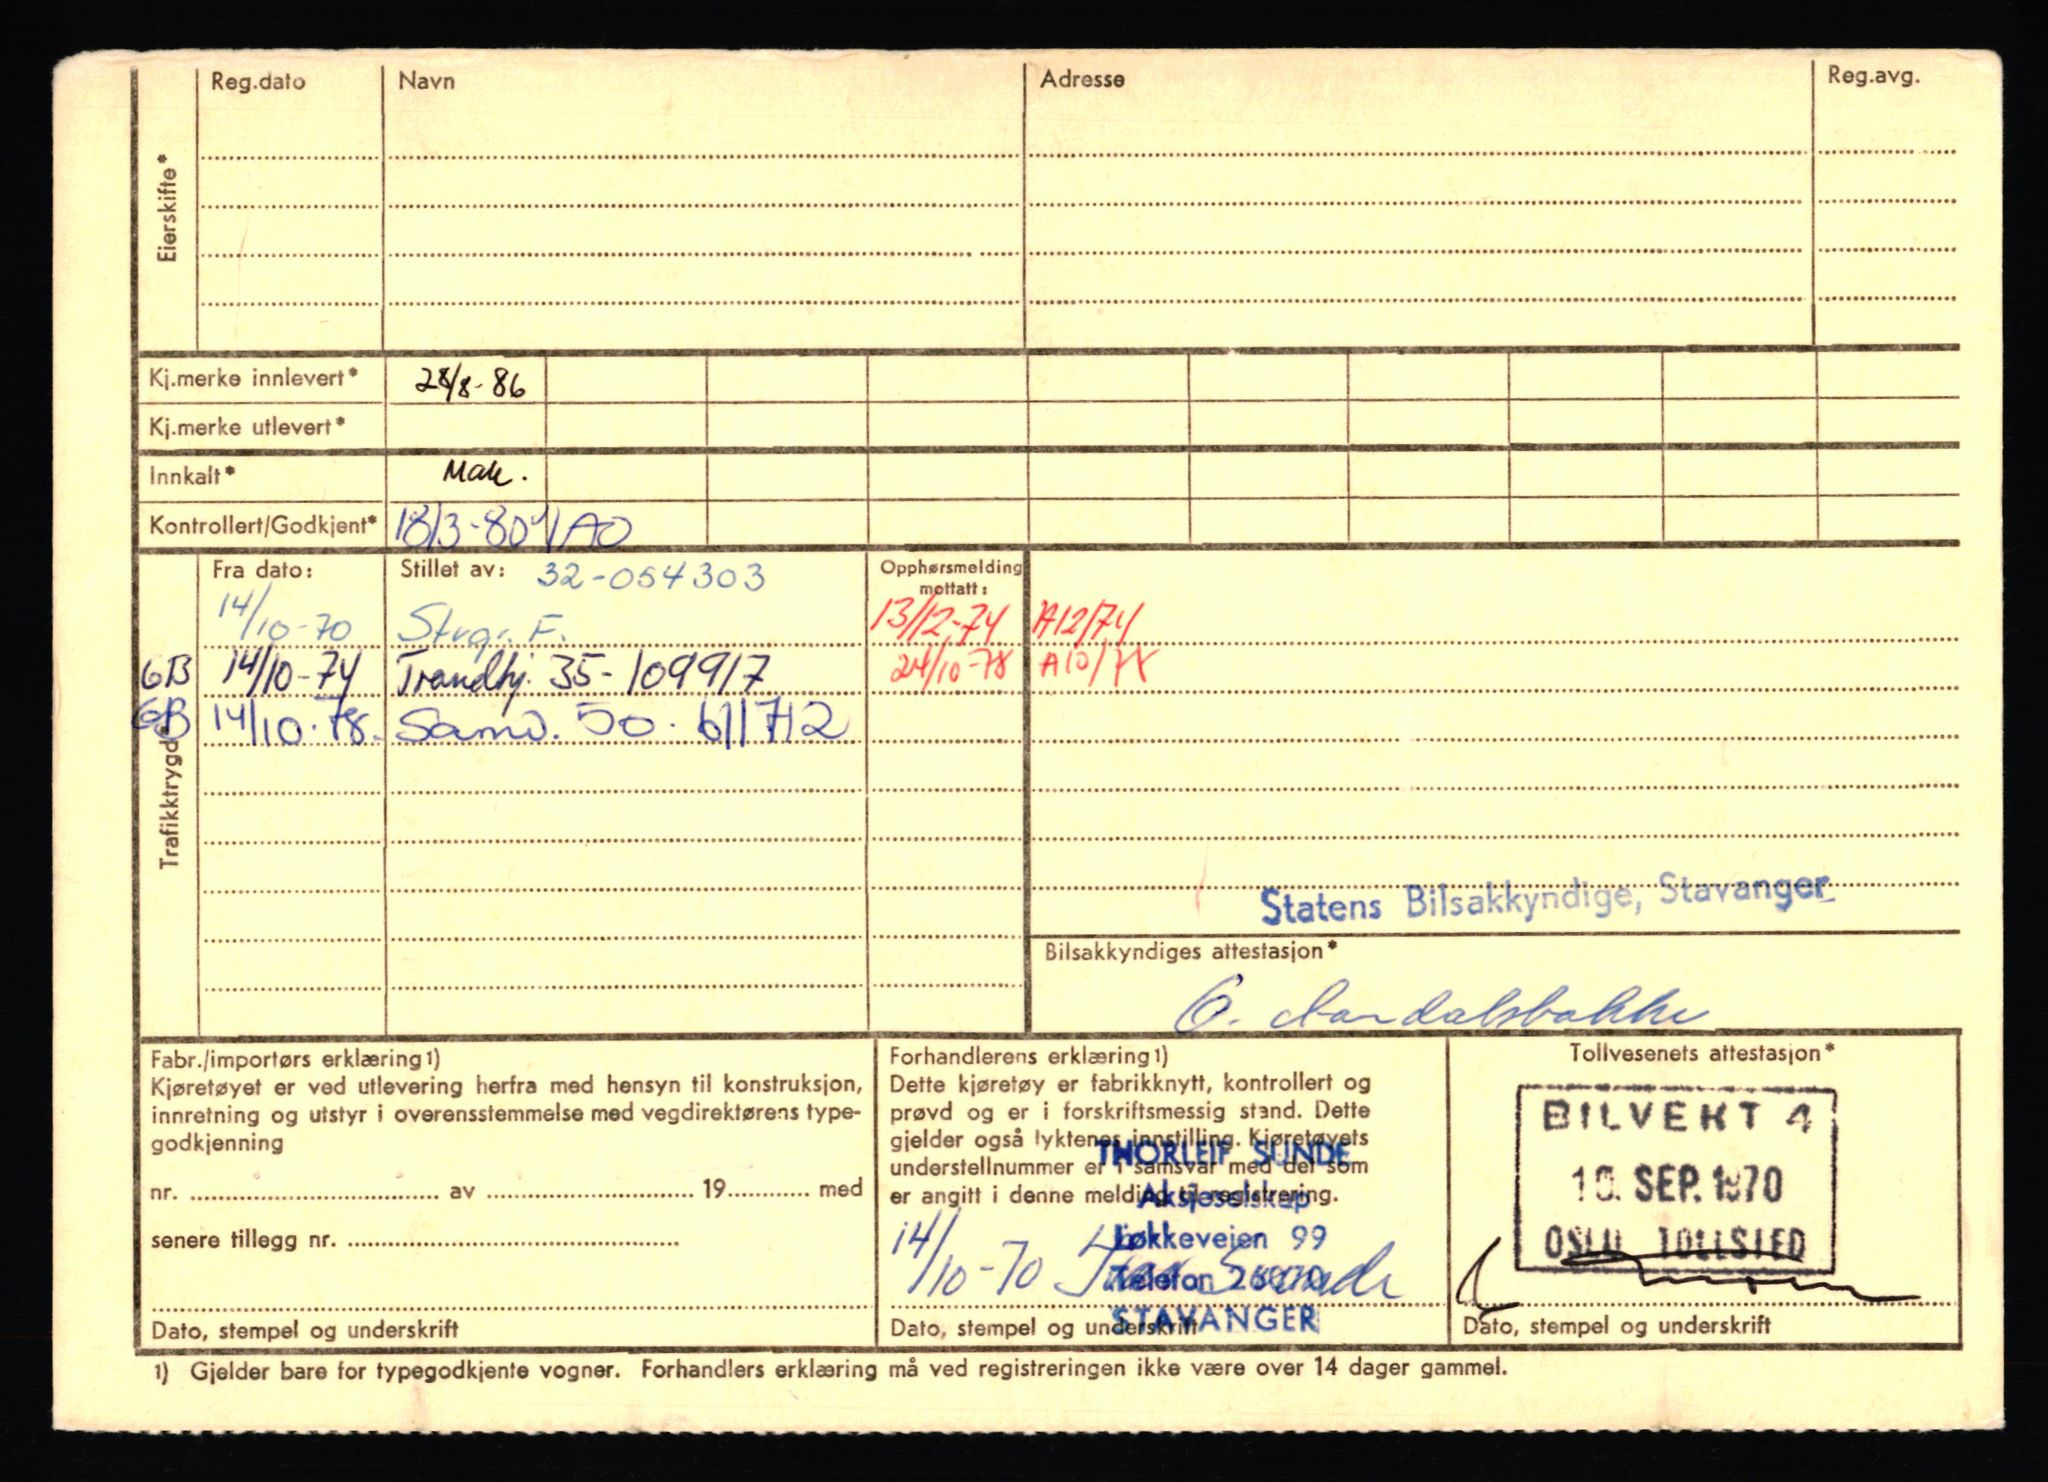 Reg.dato Navn Adresse Reg.avg.
Eierskifte*
Kj.merke innlevert* 28/8-86
Kj.merke utlevert*
Innkalt* Mak.
Kontrollert/Godkjent* 18/3-80 AO
Trafikktrygd
Fra dato: Stillet av: 32-054303 Opphørsmelding mottatt:
14/10-70 Strgr. F. 13/12-74 A12/74
GB 14/10-74 Trondhj. 35-109917 24/10-78 A10/78
GB 14/10-78. Samv. 50. 611712
Statens Bilsakkyndige, Stavanger
Bilsakkyndiges attestasjon*
Fabr./importørs erklæring1)
Kjøretøyet er ved utlevering herfra med hensyn til konstruksjon,
innretning og utstyr i overensstemmelse med vegdirektørens type-
godkjenning
nr. av 19 med
senere tillegg nr.
Dato, stempel og underskrift
Forhandlerens erklæring1)
Dette kjøretøy er fabrikknytt, kontrollert og
prøvd og er i forskriftsmessig stand. Dette
gjelder også lyktenes innstilling. Kjøretøyets
understellnummer er i samsvar med det som
er angitt i denne melding til registrering.
THORLEIF SUNDE
Aksjeselskap
Løkkeveien 99
Telefon 26070
STAVANGER
14/10-70 Sunde
Dato, stempel og underskrift
Tollvesenets attestasjon*
BILVEKT 4
10. SEP. 1970
OSLO TOLLSTED
Dato, stempel og underskrift
1) Gjelder bare for typegodkjente vogner. Forhandlers erklæring må ved registreringen ikke være over 14 dager gammel.